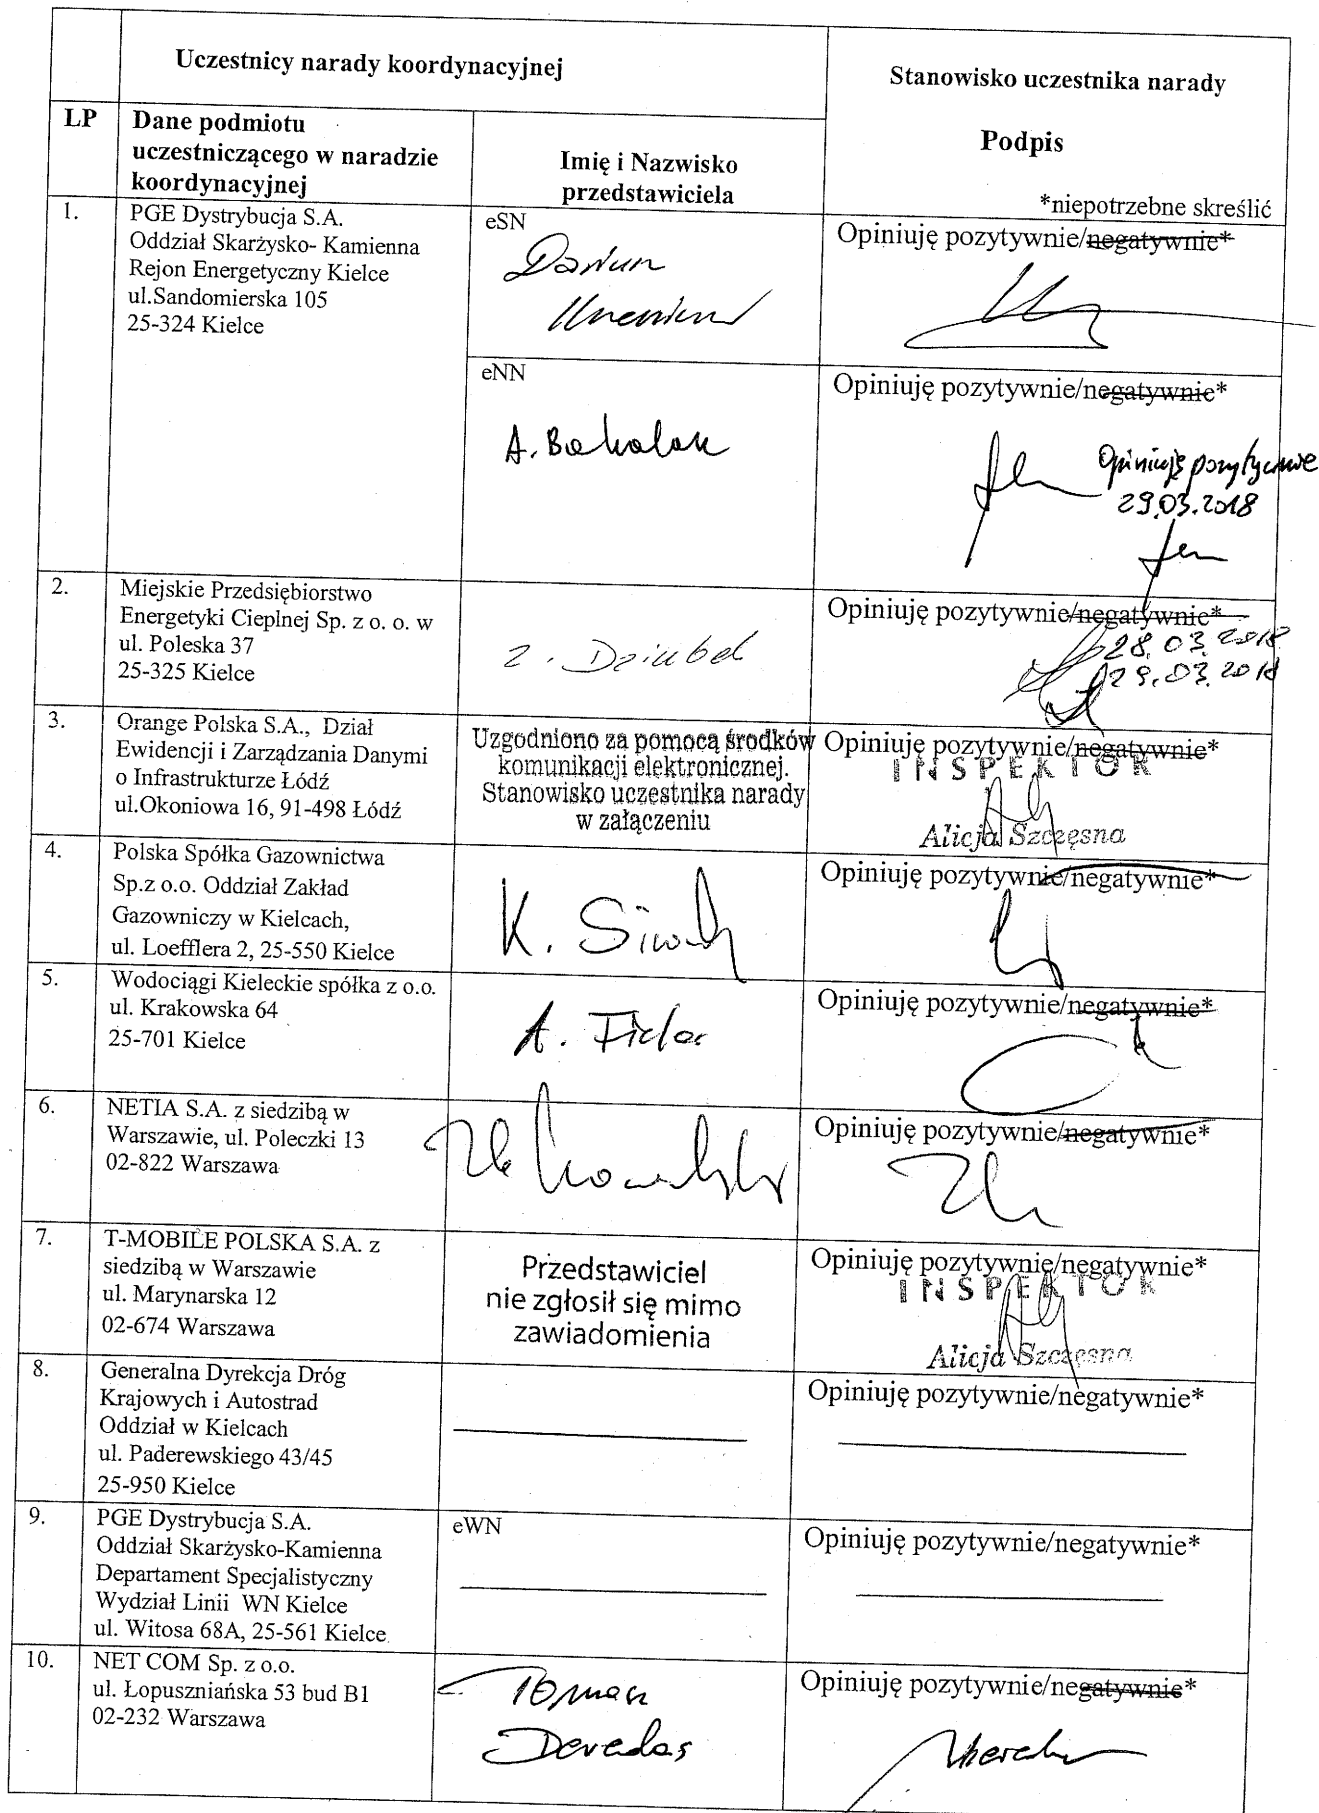 Uczestnicy narady koordynacyjnej
Stanowisko uczestnika narady
Podpis
*niepotrzebne skreślić
LP
Dane podmiotu
uczestniczącego w naradzie
koordynacyjnej
Imię i Nazwisko
przedstawiciela
1.
PGE Dystrybucja S.A.
Oddział Skarżysko- Kamienna
Rejon Energetyczny Kielce
ul.Sandomierska 105
25-324 Kielce
eSN
Opiniuję pozytywnie/negatywnie*
eNN
A. Bakalak
Opiniuję pozytywnie/negatywnie*
Opiniuję pozytywnie
29.03.2018
2.
Miejskie Przedsiębiorstwo
Energetyki Cieplnej Sp. z o. o. w
ul. Poleska 37
25-325 Kielce
Z. Dziubel
Opiniuję pozytywnie/negatywnie*
28.03.2018
29.03.2018
3.
Orange Polska S.A., Dział
Ewidencji i Zarządzania Danymi
o Infrastrukturze Łódź
ul.Okoniowa 16, 91-498 Łódź
Uzgodniono za pomocą środków
komunikacji elektronicznej.
Stanowisko uczestnika narady
w załączeniu
Opiniuję pozytywnie/negatywnie*
INSPEKTOR
Alicja Szczęsna
4.
Polska Spółka Gazownictwa
Sp.z o.o. Oddział Zakład
Gazowniczy w Kielcach,
ul. Loefflera 2, 25-550 Kielce
K.
Opiniuję pozytywnie/negatywnie*
5.
Wodociągi Kieleckie spółka z o.o.
ul. Krakowska 64
25-701 Kielce
A.
Opiniuję pozytywnie/negatywnie*
6.
NETIA S.A. z siedzibą w
Warszawie, ul. Poleczki 13
02-822 Warszawa
Opiniuję pozytywnie/negatywnie*
7.
T-MOBILE POLSKA S.A. z
siedzibą w Warszawie
ul. Marynarska 12
02-674 Warszawa
Przedstawiciel
nie zgłosił się mimo
zawiadomienia
Opiniuję pozytywnie/negatywnie*
INSPEKTOR
Alicja Szczęsna
8.
Generalna Dyrekcja Dróg
Krajowych i Autostrad
Oddział w Kielcach
ul. Paderewskiego 43/45
25-950 Kielce
Opiniuję pozytywnie/negatywnie*
9.
PGE Dystrybucja S.A.
Oddział Skarżysko-Kamienna
Departament Specjalistyczny
Wydział Linii WN Kielce
ul. Witosa 68A, 25-561 Kielce
eWN
Opiniuję pozytywnie/negatywnie*
10.
NET COM Sp. z o.o.
ul. Łopuszniańska 53 bud B1
02-232 Warszawa
Tomasz
Deredas
Opiniuję pozytywnie/negatywnie*